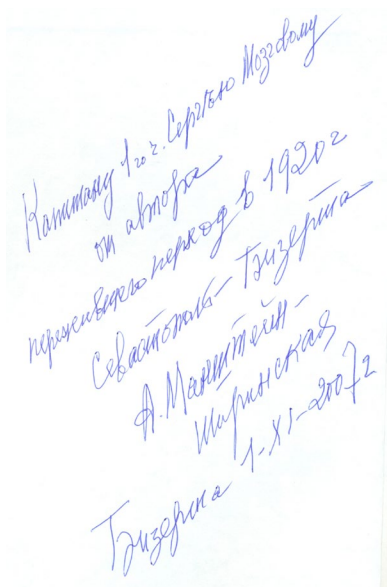 Капитану 1го ч. Сергѣю Мозговому
от автора
пережившего переход в 1920 г
Севастополь - Бизерта
А. Манштейн-
Ширинская
Бизерта 1-XI-2007 г